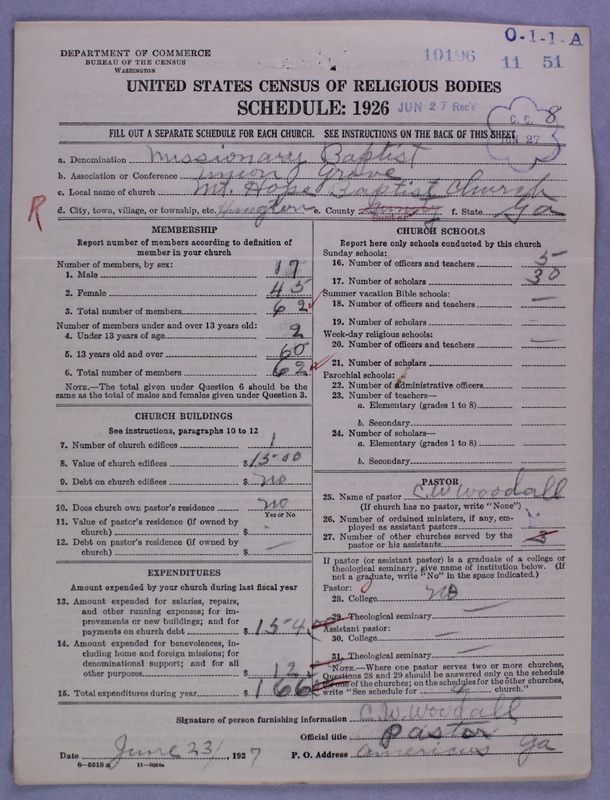 O-1-1-A
DEPARTMENT OF COMMERCE
BUREAU OF THE CENSUS
WASHINGTON
10196 11 51
UNITED STATES CENSUS OF RELIGIOUS BODIES
SCHEDULE: 1926
JUN 27 Rec'd
C. C. 8
JUN 27
FILL OUT A SEPARATE SCHEDULE FOR EACH CHURCH. SEE INSTRUCTIONS ON THE BACK OF THIS SHEET
a. Denomination Missionary Baptist
b. Association or Conference Union Grove
c. Local name of church Mt. Hope Baptist Church
R d. City, town, village, or township, etc. e. County Sumter f. State Ga
MEMBERSHIP
Report number of members according to definition of
member in your church
Number of members, by sex:
1. Male 17
2. Female 45
3. Total number of members 62
Number of members under and over 13 years old:
4. Under 13 years of age 2
5. 13 years old and over 60
6. Total number of members 62
NOTE.—The total given under Question 6 should be
same as the total of males and females given under Question 3.
CHURCH BUILDINGS
See instructions, paragraphs 10 to 12
7. Number of church edifices 1
8. Value of church edifices $1500
9. Debt on church edifices $ no
10. Does church own pastor's residence? no
Yes or No
11. Value of pastor's residence (if owned by
church) $ -
12. Debt on pastor's residence (if owned by
church) $ —
EXPENDITURES
Amount expended by your church during last fiscal year
13. Amount expended for salaries, repairs,
and other running expenses; for im-
provements or new buildings; and for
payments on church debt $154
14. Amount expended for benevolences, in-
cluding home and foreign missions; for
denominational support; and for all
other purposes $ 12
15. Total expenditures during year $ 166
CHURCH SCHOOLS
Report here only schools conducted by this church
Sunday schools:
16. Number of officers and teachers 5
17. Number of scholars 30
Summer vacation Bible schools:
18. Number of officers and teachers —
19. Number of scholars
Week-day religious schools:
20. Number of officers and teachers —
21. Number of scholars
Parochial schools:
22. Number of administrative officers
23. Number of teachers—
a. Elementary (grades 1 to 8)
b. Secondary
24. Number of scholars—
a. Elementary (grades 1 to 8)
b. Secondary
PASTOR
25. Name of pastor C.W. Woodall
(If church has no pastor, write "None")
26. Number of ordained ministers, if any, em-
ployed as assistant pastors
27. Number of other churches served by the
pastor or his assistants 3
If pastor (or assistant pastor) is a graduate of a college or
theological seminary, give name of institution below. (If
not a graduate, write "No" in the space indicated.)
Pastor:
28. College no
29. Theological seminary —
Assistant pastor:
30. College —
31. Theological seminary —
NOTE.—Where one pastor serves two or more churches,
Questions 28 and 29 should be answered only on the schedule
for one of the churches; on the schedules for the other churches,
write "See schedule for church."
Signature of person furnishing information C.W. Woodall
Official title Pastor
Date June 23, 1927 P. O. Address Americus Ga
8-5518 a 11-9054a